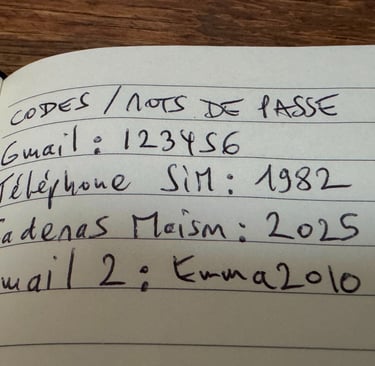 CODES / MOTS DE PASSE
Gmail : 123456
Téléphone SiM : 1982
adenas Maison : 2025
mail 2 : Emma2010